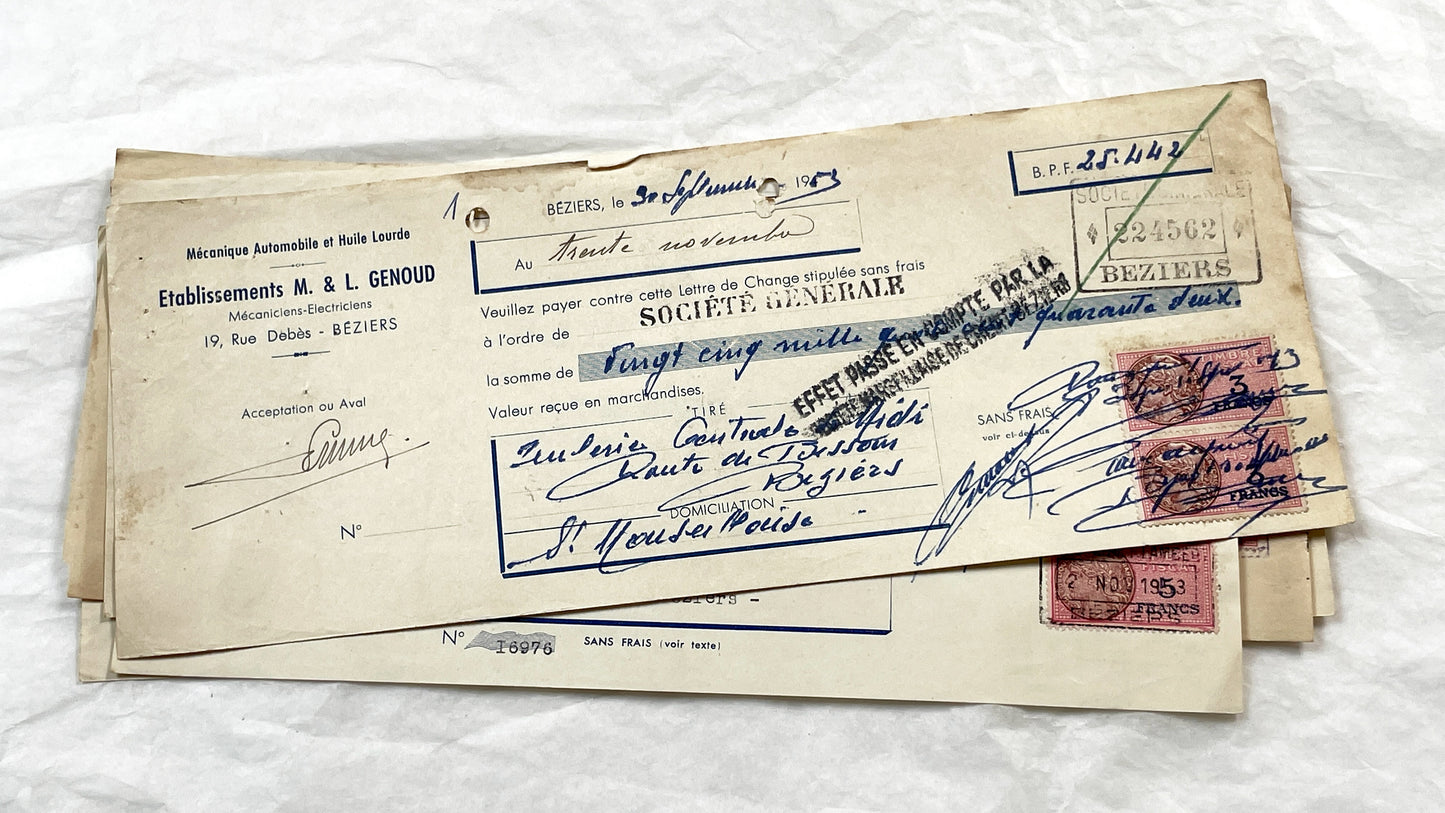 1
BÉZIERS, le 30 Septembre 1953
B. P. F. 25.442
Mécanique Automobile et Huile Lourde
Etablissements M. & L. GENOUD
Mécaniciens-Electriciens
19, Rue Debès - BÉZIERS
Au trente novembre
SOCIETE GENERALE
224562
BEZIERS
Veuillez payer contre cette Lettre de Change stipulée sans frais
à l'ordre de SOCIÉTÉ GÉNÉRALE
la somme de Vingt cinq mille quatre cent quarante deux.
EFFET PASSÉ EN COMPTE PAR LA
MARSEILLAISE DE CREDIT BEZIERS
Valeur reçue en marchandises.
Acceptation ou Aval
TIRÉ
Centrale Midi
Route de
Beziers
DOMICILIATION
N°
SANS FRAIS
voir ci-dessus
TIMBRE
FISCAL
3
FRANCS
FRANCS
Béziers -
N° I6976
SANS FRAIS (voir texte)
TIMBRE
FISCAL
2 NO 1953
5
FRANCS